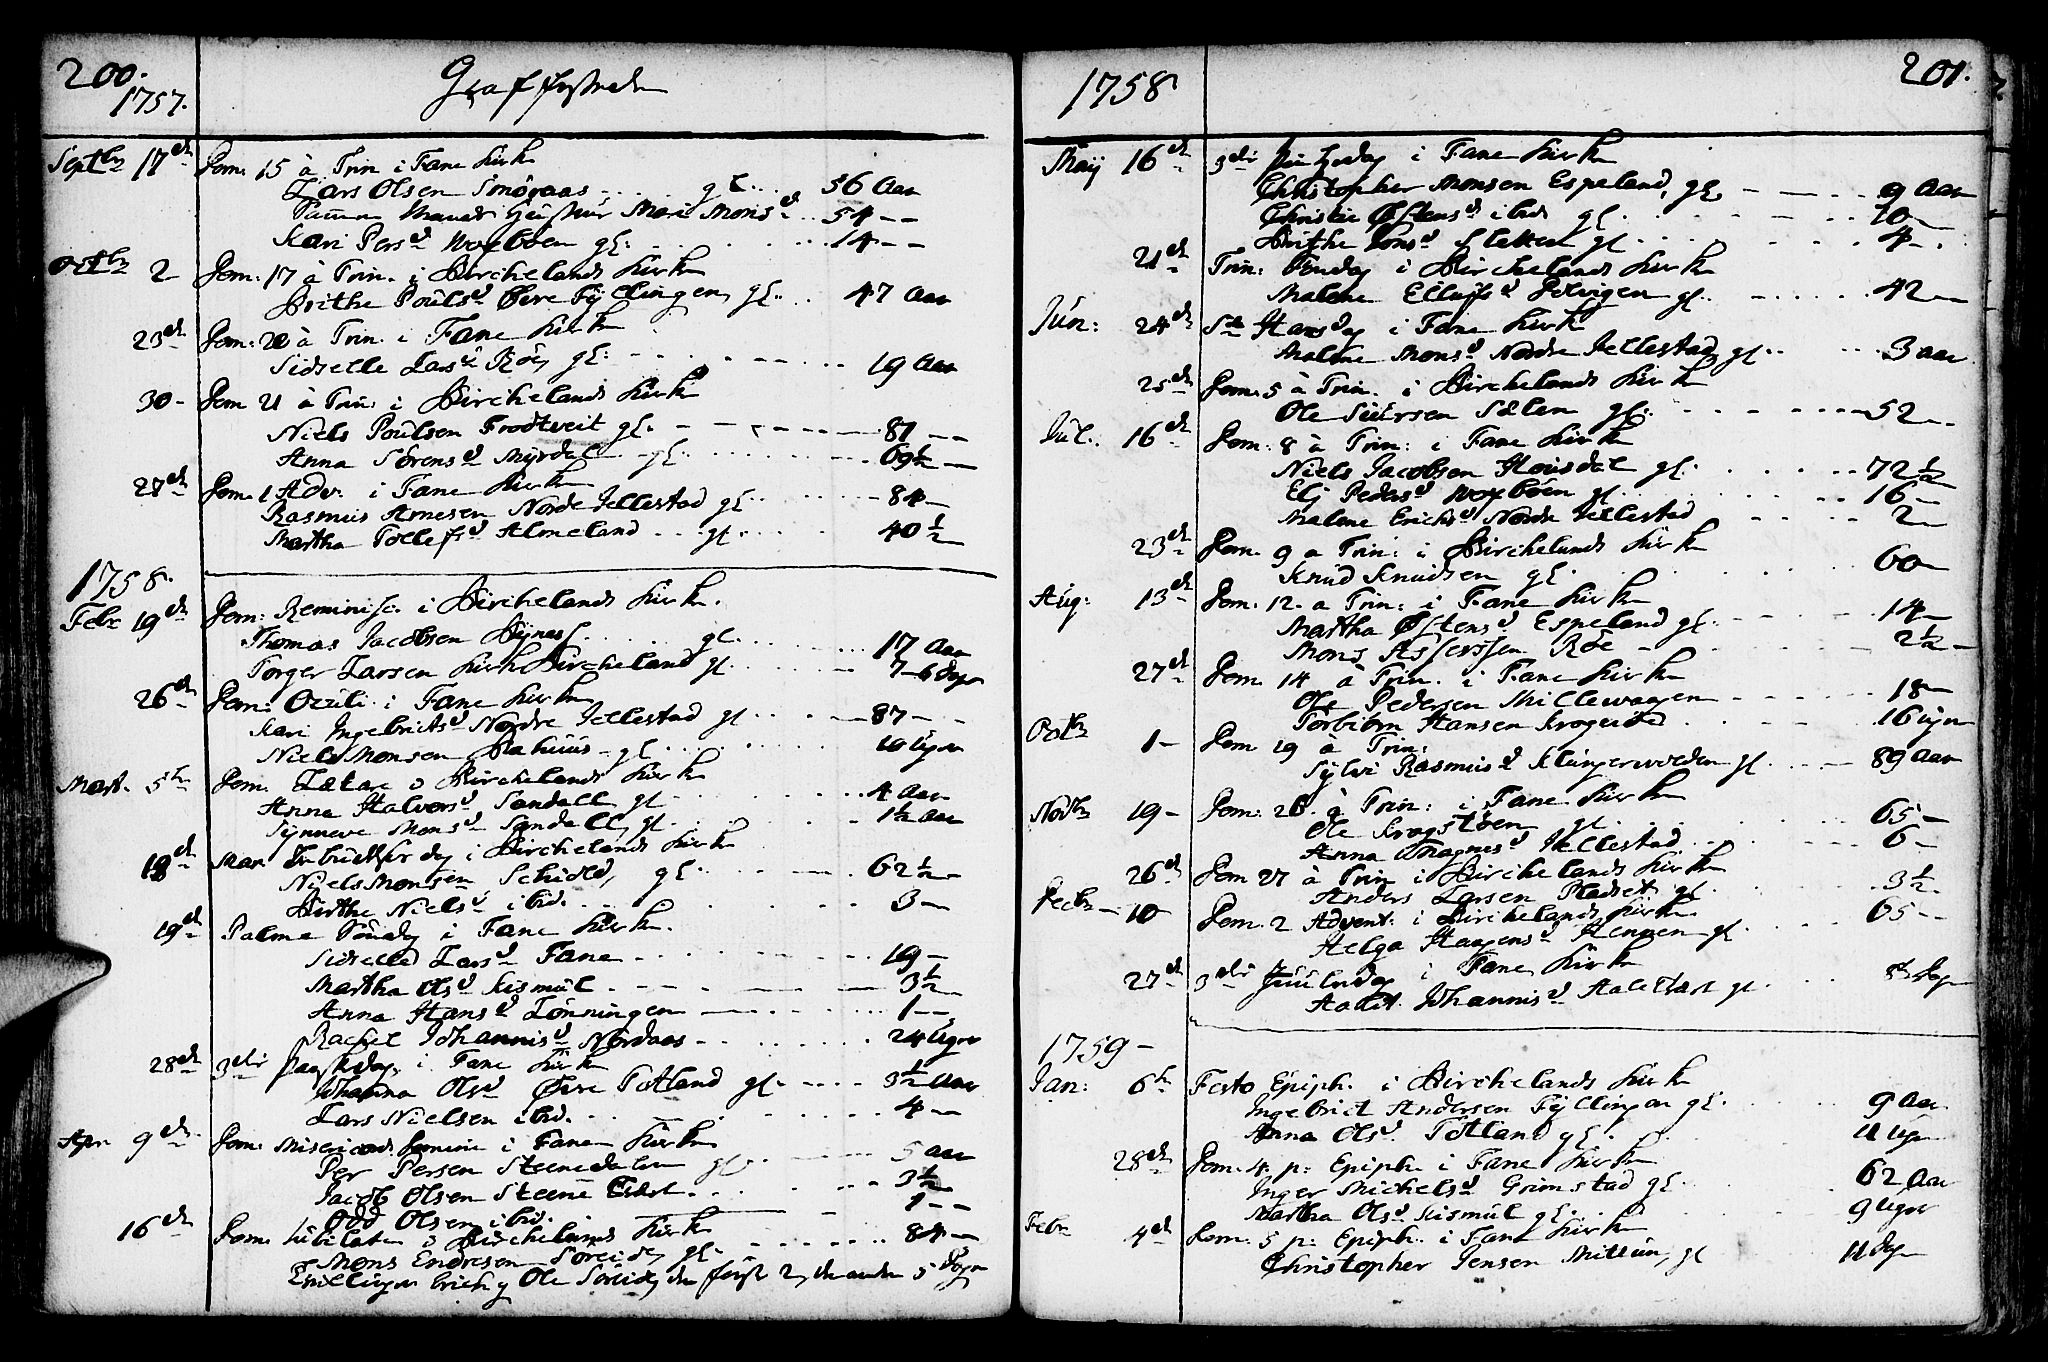 200.
1757.
Graf festede
Septbr 17de Dom. 15 à Trin i Fane Kirke
Lars Olsen Smøraas gl. 56 Aar
Mons d. 54 --
Kari Pers d. Woxboen gl. 14 --
Octbr 2 Dom. 17 à Trin. i Birchelands Kirke
Brithe Pouls d. Øvre Fyllingen gl. 47 Aar
23de Dom: 20 à Trin. i Fane Kirke
Sidselle Lars d. Røe gl. 19 Aar
30 - Dom 21 à Trin: i Birchelands Kirke
Niels Poulsen Trodtveit gl. 87 --
Anna Sørens d. Myrdal gl. 69½ --
27de Dom. 1 Adv. i Fane Kirke
Rasmus Arnesen Nordre Jellestad gl. 84 -
Martha Tollefs d. Almeland gl. 40½
1758.
Febr 19de Dom: Reminisc. i Birchelands Kirke.
Thomas Jacobsen Bynes gl. 17 Aar
Torger Larsen Kirk Bircheland gl. 7 - 6 Dage
26de Dom: Oculi i Fane Kirke
Kari Ingebrichts d. Nordre Jellestad gl. 87 -
Niels Monsen Rahuus gl. 10 Uger
Mart. 5te Dom. Lætare i Birchelands Kirke
Anna Halvors d. Sandall gl. 4 Aar
Synneve Mons d. Sandall gl. 1½ Aar
18de Mar. dag i Birchelands Kirke
Niels Monsen Schiold, gl. 62½ -
Birthe Niels d. ibid. 3 -
19de Palme Søndag i Fane Kirke.
Sidselle Lars d. Fane 19 -
Martha Ols d. Kismul 3½
Anna Hans d. Lønningen 1 -
Rachel Johannis d. Nordaas 24 Uger
28de 3die Paaskedag i Fane Kirke
Johanna Ols d. Øvre Totland gl. 3½ Aar
Lars Nielsen ibid. 4 -
Apr 9de Dom. Misericord. Domini i Fane Kirke
Per Persen Steensdalen gl. 5 Aar
Jacob Olsen Steens 3½
Odd Olsen ibid. 1 --
16de Dom. Jubilate i Birchelands Kirke
Mons Endresen Søreide gl. 84 -
Tvillinger Erich og Ole Søreide den første 2, den anden 5 Dage
1758
201.
Maij 16de 3die Pintzedag i Fane Kirke
Christopher Monsen Espeland, gl. 9 Aar
Christie Østens d. ibid gl. 10
Brithe Jons d. Sletten gl. 4 -
21de Trin: Søndag i Birchelands Kirke
Malene Ellufs d. Dolvigen gl. 42 -
Jun: 24de St. Hansdag i Fane Kirke
Malene Mons d. Nordre Jellestad gl. 3 aar
25de Dom. 5 à Trin. i Birchelands Kirke
Ole Siursen Sælen gl. 52 -
Jul. 16de Dom. 8 à Trin: i Fane Kirke
Niels Jacobsen Housdal gl. 72½
Elj Peders d. Woxboen gl. 16 -
Malene Erichs d. Nordre Jellestad 2 -
23de Dom. 9 a Trin: i Birchelands Kirke
Knud Knudsen gl. 60 -
Aug: 13de Dom. 12. a Trin: i Fane Kirke
Martha Østens d. Espeland gl. 14 -
Mons Assersen Røe 2½ -
27de Dom. 14 à Trin. i Fane Kirke
Ole Pedersen Millewaagen 18 -
Torbiørn Hansen Krogerød 16 Uger
Octbr 1 - Dom 19 à Trin:
Sylvi Rasmus d. Klingerwolden gl. 89 Aar
Novbr 19 - Dom. 26. à Trin: i Fane Kirke
Ole Krogstøen gl. 65 -
Anna Magnes d. Jellestad 6 -
26de Dom 27 à Trin i Birchelands Kirke
Anders Larsen Pladset gl. 3½
Decbr 10 Dom. 2 Advent. i Birchelands Kirke
Helga Haagens d. Hennen gl. 65 --
27de 3die Juuledag i Fane Kirke
Johannis d. gl. Dage
1759 -
Jan: 6te Festo Epiph. i Birchelands Kirke
Ingebrict Andersen Fyllingen gl. 9 Aar
Anna Ols d. Totland gl. 11 Uger
28de Dom. 4. p: Epiph. i Fane Kirke
Inger Michels d. Grimstad gl. 62 Aar
Martha Ols d. Kismul gl. 9 Uger
Febr 4de Dom. 5 p: Epiph. i Fane Kirke
Christopher Jensen Mittun, gl 11 Dage